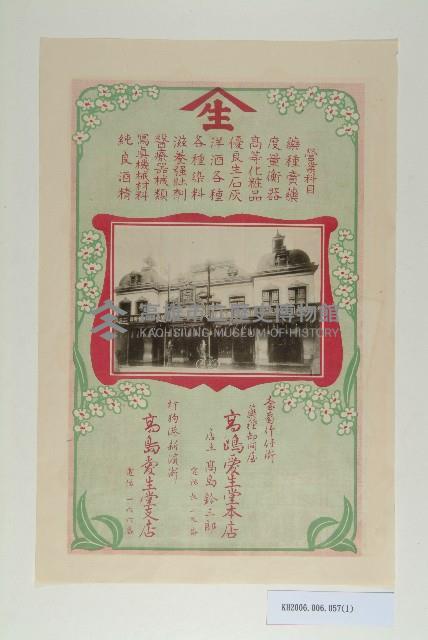 生
營業科目
藥種賣藥
度量衡器
高等化粧品
優良生石灰
洋酒各種
各種染料
滋養强壯劑
醫療器械類
寫眞機械材料
純良酒精
高雄市立歷史博物館
KAOHSIUNG MUSEUM OF HISTORY
臺南竹仔街
藥種卸問屋
高島愛生堂本店
店主 高島鈴三郎
打狗港新濱街
高島愛生堂支店
KH2006.006.057(1)